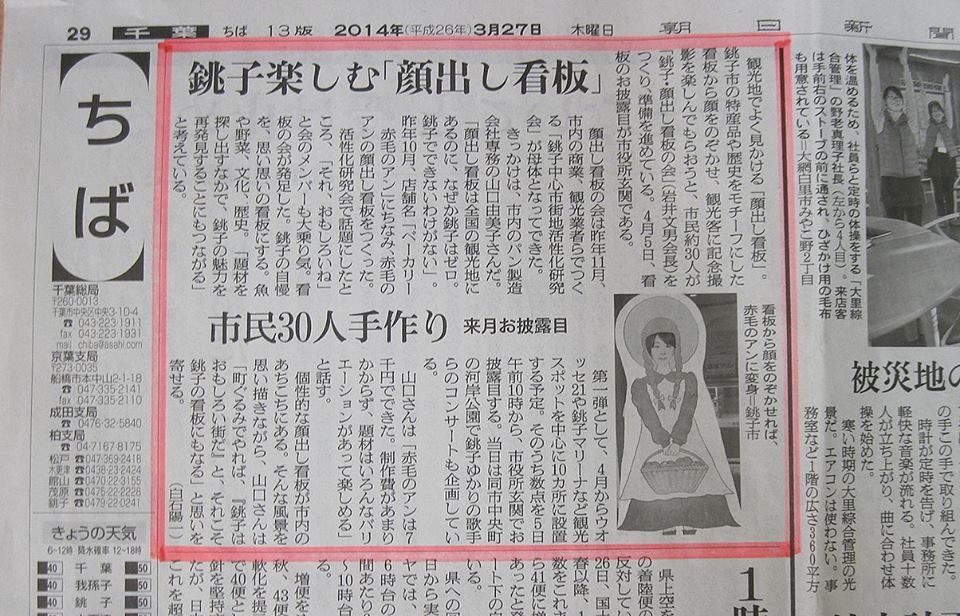 29 千葉 ちば 13版 2014年(平成26年)3月27日 木曜日 朝日新聞
ちば
千葉総局
〒260-0013
千葉市中央区中央3-10-4
☎ 043-223-1911
fax 043-223-1931
mail chiba@asahi.com
京葉支局
〒273-0035
船橋市本中山2-1-18
☎ 047-335-2141
fax 047-335-2110
成田支局
☎ 0476-32-5840
柏支局
☎ 04-7167-8175
松戸 ☎047-369-2418
木更津 ☎0438-23-2424
館山 ☎0470-22-3155
茂原 ☎0475-22-2228
銚子 ☎0479-22-0241
きょうの天気
6~12時 降水確率 12~18時
40 千葉 50
40 我孫子 50
40 銚子 50
銚子楽しむ「顔出し看板」
市民30人手作り 来月お披露目
観光地でよく見かける「顔出し看板」。
銚子市の特産品や歴史をモチーフにした
看板から顔をのぞかせ、観光客に記念撮
影を楽しんでもらおうと、市民約30人が
「銚子・顔出し看板の会」(岩井文男会長)を
つくり、準備を進めている。4月5日、看
板のお披露目が市役所玄関である。
顔出し看板の会は昨年11月、
市内の商業、観光業者らでつく
る「銚子中心市街地活性化研究
会」が母体となってできた。
きっかけは、市内のパン製造
会社専務の山口由美子さんだ。
「顔出し看板は全国の観光地に
あるのに、なぜか銚子はゼロ。
銚子でできないわけがない」。
昨年10月、店舗名「ベーカリー
赤毛のアン」にちなみ、赤毛の
アンの顔出し看板をつくった。
活性化研究会で話題にしたと
ころ、「それ、おもしろいね」
と会のメンバーも大乗り気。看
板の会が発足した。銚子の自慢
を、思い思いの看板にする。魚
や野菜、文化、歴史。「題材を
探し出すなかで、銚子の魅力を
再発見することにもつながる」
と考えている。
看板から顔をのぞかせれば、
赤毛のアンに変身=銚子市
第一弾として、4月からウオ
ッセ21や銚子マリーナなど観光
スポットを中心に10カ所に設置
する予定。そのうち数点を5日
午前10時から、市役所玄関でお
披露目する。当日は同市中央町
の河岸公園で銚子ゆかりの歌手
らのコンサートも企画してい
る。
山口さんは「赤毛のアンは7
千円でできた。制作費があまり
かからず、題材はいろんなバリ
エーションがあって楽しめる」
と話す。
個性的な顔出し看板が市内の
あちこちにある。そんな風景を
思い描きながら、山口さんは
「町ぐるみでやれば、『銚子は
おもしろい街だ』と、それこそ
銚子の看板にもなる」と思いを
寄せる。
(白石陽一)
体を温めるため、社員らと定時の体操をする「大里綜
合管理」の野老真理子社長(左から4人目)。来店客
は手前右のストーブの前に通され、ひざかけ用の毛布
も用意されている=大網白里市みやこ野2丁目
被災地の
の手この手で取り組んできた。
時計が定時を告げ、事務所に
軽快な音楽が流れる。社員十数
人が立ち上がり、曲に合わせ体
操を始めた。
寒い時期の大里綜合管理の光
景だ。エアコンは使わない。事
務室など1階の広さ360平方